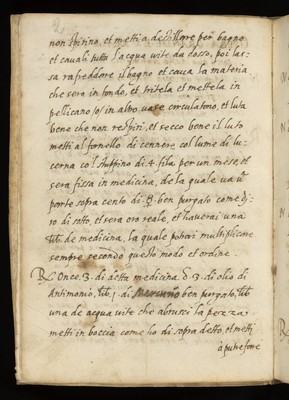 non spirino, et metti a destillare per bagno
et cavali tutta l'acqua vite da dosso, poi las=
sa rafreddore il bagno et cava la materia
che sera in fondo, et tritela et mettela in
pellicano /o/ in altro vase circulatorio, et luta
bene che non respiri, et secco bene il luto
metti al fornello di cennere, col lume di lu=
cerna col stuppino di 4. fila per un mese, et
sera fissa in medicina, de la quale va un
porto sopra cento di ☿ ben purgato come di=
co di sotto, et sera oro reale, et haverai una
lib. de medicina, la quale potrai multiplicare
sempre secondo questo modo et ordine.
℞ Once. 3. di detta medicina ℥. 3. di olio di
Antimonio, lib. j. di Mercurio ben purgato, lib.
una de acqua vite che abrusci la pezza,
metti in boccia come ho di sopra detto, et metti
à putrefare